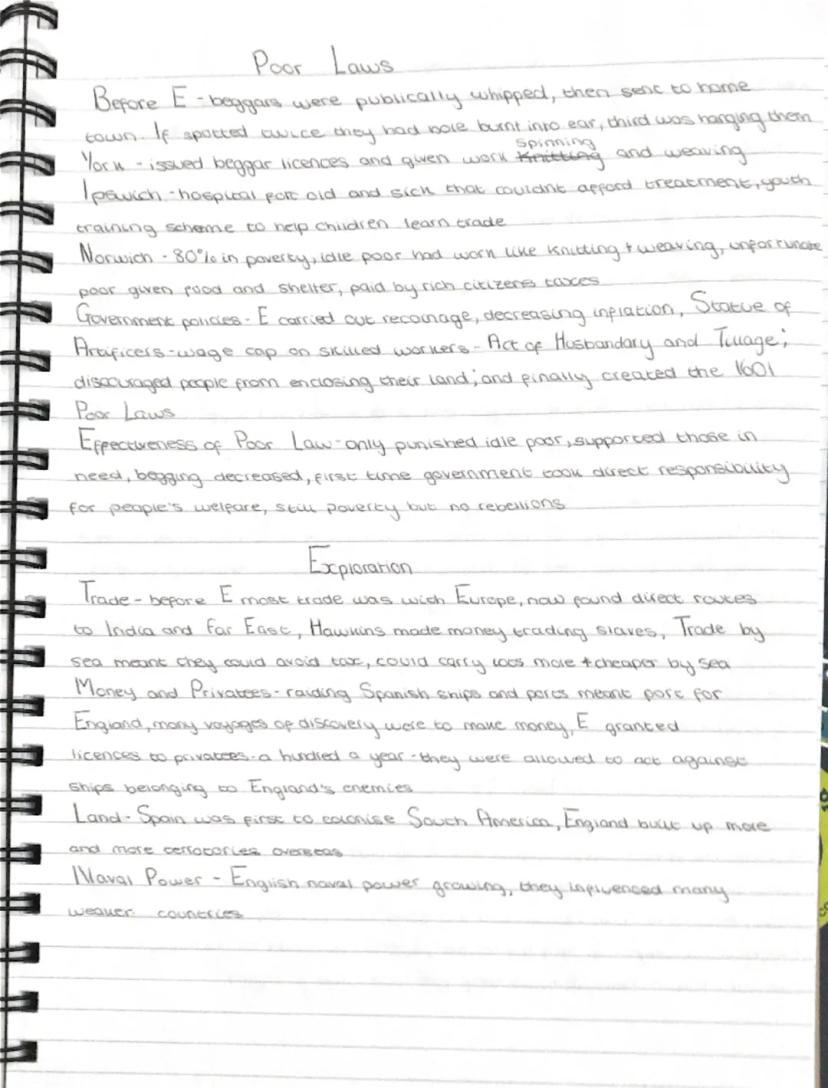 Poor Laws
Before E - beggars were publically whipped, then sent to home
town. If spotted twice they had hole burnt into ear, third was hanging them
spinning
York - issued beggar licences and given work Knitting and weaving
Ipswich - hospital for old and sick that couldnt afford treatment, youth
training scheme to help children learn trade
Norwich - 80% in poverty, idle poor had work like knitting + weaving, unfortunate
poor given food and shelter, paid by rich citizens taxes
Government policies - E carried out recoinage, decreasing inflation, Statue of
Artificers - wage cap on skilled workers - Act of Husbandary and Tillage;
discouraged people from enclosing their land; and finally created the 1601
Poor Laws
Effectiveness of Poor Law - only punished idle poor, supported those in
need, begging decreased, first time government took direct responsibility
for people's welfare, still poverty but no rebellions
Exploration
Trade - before E most trade was with Europe, now found direct routes
to India and Far East, Hawkins made money trading slaves, Trade by
sea meant they could avoid tax, could carry lots more + cheaper by sea
Money and Privatees - raiding Spanish ships and ports meant for
England, many voyages of discovery were to make money, E granted
licences to privatees - a hundred a year - they were allowed to act against
ships belonging to England's enemies
Land - Spain was first to colonise South America, England built up more
and more territories overseas
Naval Power - English naval power growing, they influenced many
weaker countries